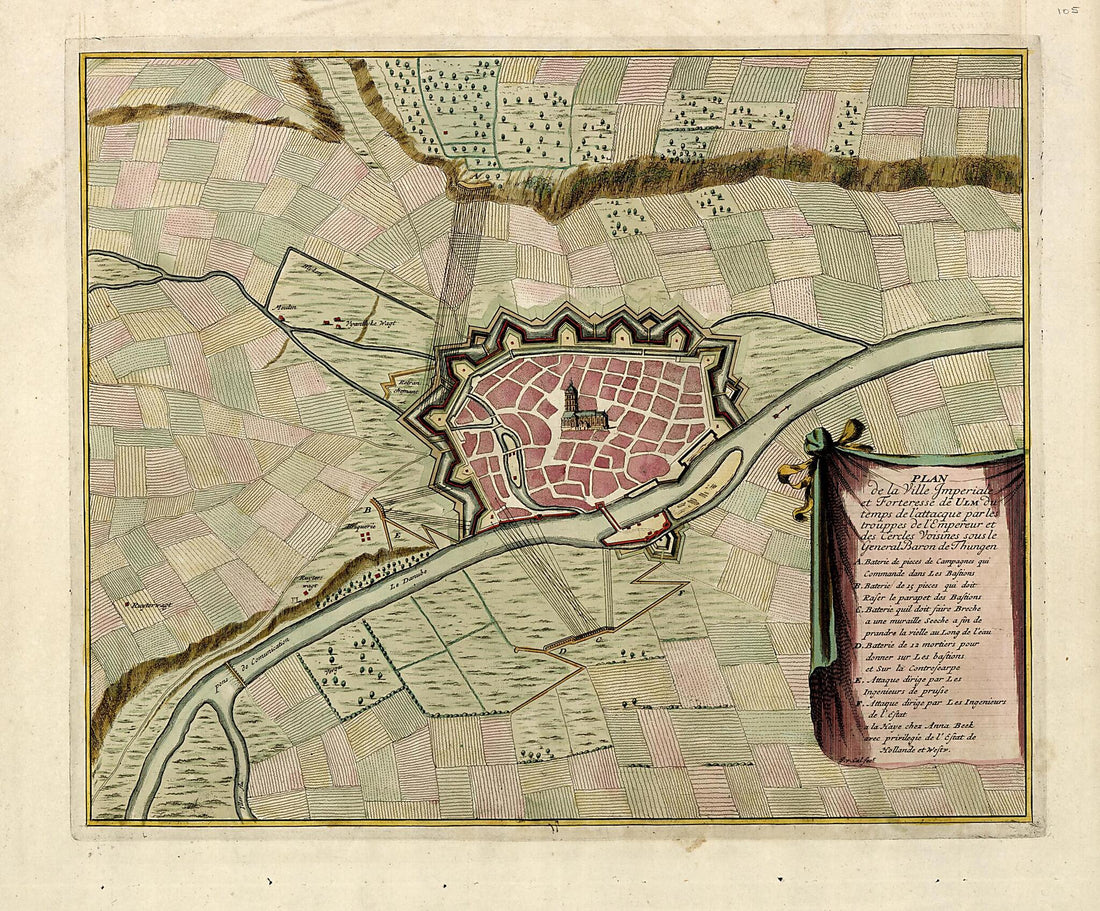 105
Moulin
Retran
chement
B
E
Ruyters
wagt
Ruyterwagt
Le Danube
de Comunication
F
C
D
PLAN
de la Ville Imperiale
et Forteresse de ULM du
temps de l'attacque par les
trouppes de l'Empereur et
des Cercles Voisines sous le
General Baron de Thungen
A. Baterie de pieces de Campagnes qui
Commande dans Les Bastions
B. Baterie de 15 pieces qui doit
Raser le parapet des Bastions
C. Baterie quil doit faire Breche
a une muraille Seeche a fin de
prandre la vielle au Long de l'eau
D. Baterie de 12 mortiers pour
donner sur Les bastions
et Sur la Contrescarpe
E. Attaque dirige par Les
Ingenieurs de prusse
F. Attaque dirige par Les Ingenieurs
de l'Estat
a la Haye chez Anna Beek
avec privilegie de l'Estat de
Hollande et Westr.